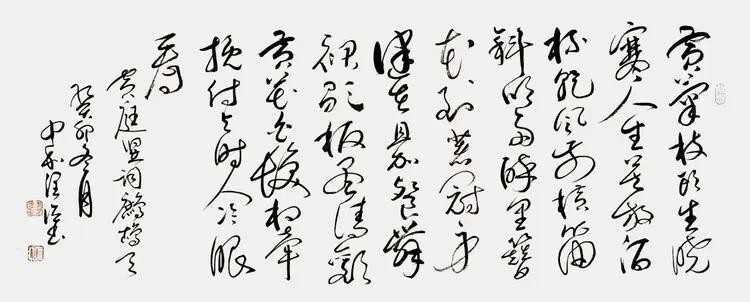 黄菊枝头生曉
寒人生莫放酒
杯乾風前横笛
斜吹雨醉里簪
花倒著冠身
健在且加餐舞
裙歌板尽清歡
黄花白髮相牵
挽付与时人冷眼
看
黄庭坚词鹧鸪天
癸卯冬月